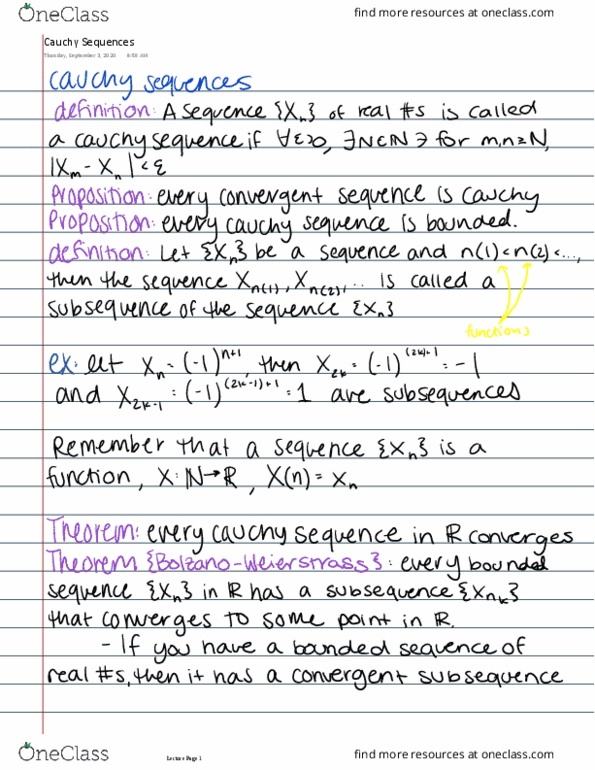 OneClass find more resources at oneclass.com
Cauchy Sequences
Thursday, September 3, 2020 8:58 AM
cauchy sequences
definition: A sequence {Xₙ} of real #s is called
a cauchy sequence if ∀ε>0, ∃N∈ℕ ∋ for m,n≥N,
|Xₘ - Xₙ| < ε
Proposition: every convergent sequence is cauchy
Proposition: every cauchy sequence is bounded.
definition: Let {Xₙ} be a sequence and n(1)<n(2)<...,
then the sequence X_{n(1)}, X_{n(2)}, ... is called a
subsequence of the sequence {Xₙ}
functions
ex: let Xₙ = (-1)^{n+1}, then X_{2k} = (-1)^{(2k)+1} = -1
and X_{2k-1} = (-1)^{(2k-1)+1} = 1 are subsequences
Remember that a sequence {Xₙ} is a
function, X: ℕ→ℝ, X(n) = xₙ
Theorem: every cauchy sequence in ℝ converges
Theorem {Bolzano-Weierstrass}: every bounded
sequence {Xₙ} in ℝ has a subsequence {X_{n_k}}
that converges to some point in ℝ.
- If you have a bounded sequence of
real #s, then it has a convergent subsequence
OneClass Lecture Page 1 find more resources at oneclass.com